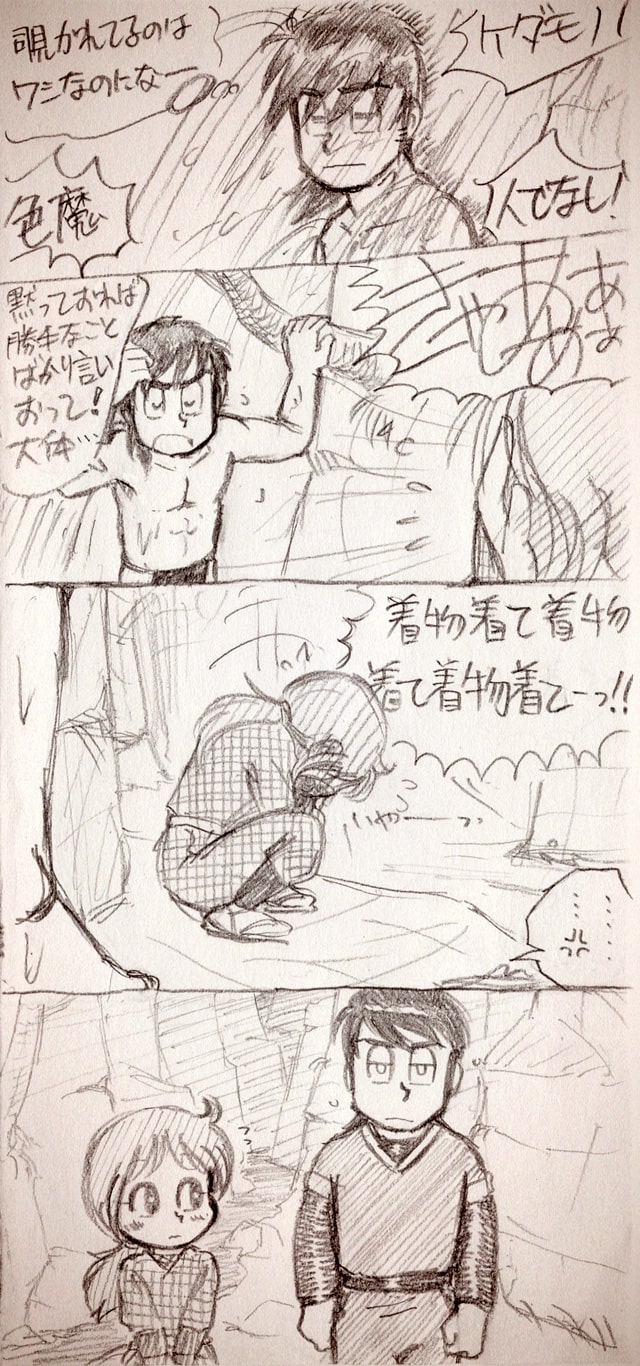 ケダモノ!
人でなし!
覗かれてるのは
ワシなのになー
色魔
きゃあああ
ああ
黙っておれば
勝手なこと
ばかり言い
おって!
大体…
着物着て着物
着て着物着てーっ!!
いやーーっ
……
……